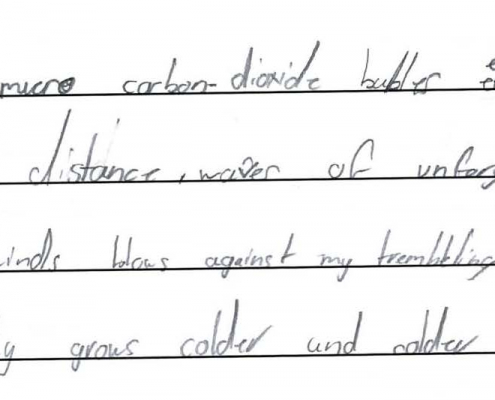 micro carbon-dioxide bubles
distance, waves of unforg
inds blows against my trembling
y grows colder and colder